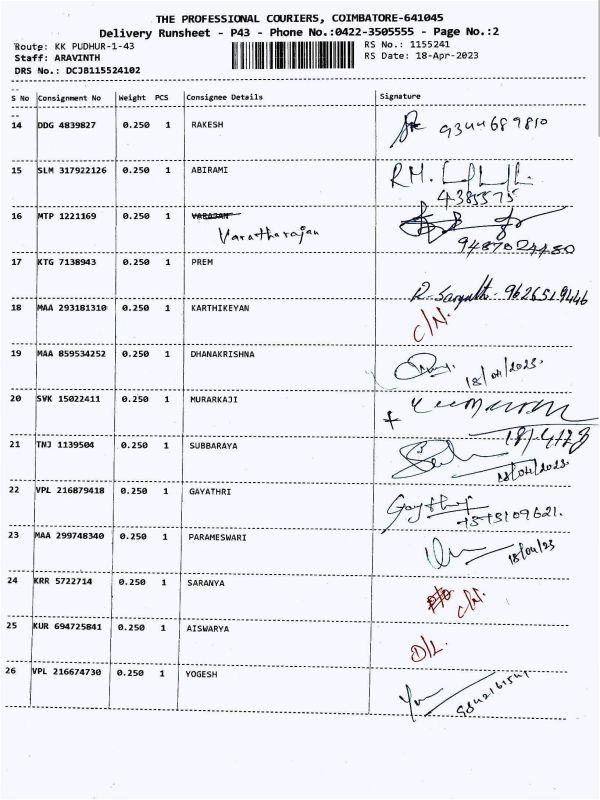 THE PROFESSIONAL COURIERS, COIMBATORE-641045
Delivery Runsheet - P43 - Phone No.:0422-3505555 - Page No.:2
Route: KK PUDHUR-1-43 RS No.: 1155241
Staff: ARAVINTH RS Date: 18-Apr-2023
DRS No.: DCJB115524102
S No Consignment No Weight PCS Consignee Details Signature
14 DDG 4839827 0.250 1 RAKESH 9344689810
15 SLM 317922126 0.250 1 ABIRAMI R.M.
4385575
16 MTP 1221169 0.250 1 VARAJAN
Varatharajan
9487024480
17 KTG 7138943 0.250 1 PREM
9626519446
18 MAA 293181310 0.250 1 KARTHIKEYAN C/N.
19 MAA 859534252 0.250 1 DHANAKRISHNA 18/04/2023.
20 SVK 15022411 0.250 1 MURARKAJI
18/4/23
21 TNJ 1139504 0.250 1 SUBBARAYA
18/04/2023.
22 VPL 216879418 0.250 1 GAYATHRI Gayathri
23 MAA 299748340 0.250 1 PARAMESWARI 18/04/23
24 KRR 5722714 0.250 1 SARANYA C/N.
25 KUR 694725841 0.250 1 AISWARYA D/L.
26 VPL 216674730 0.250 1 YOGESH